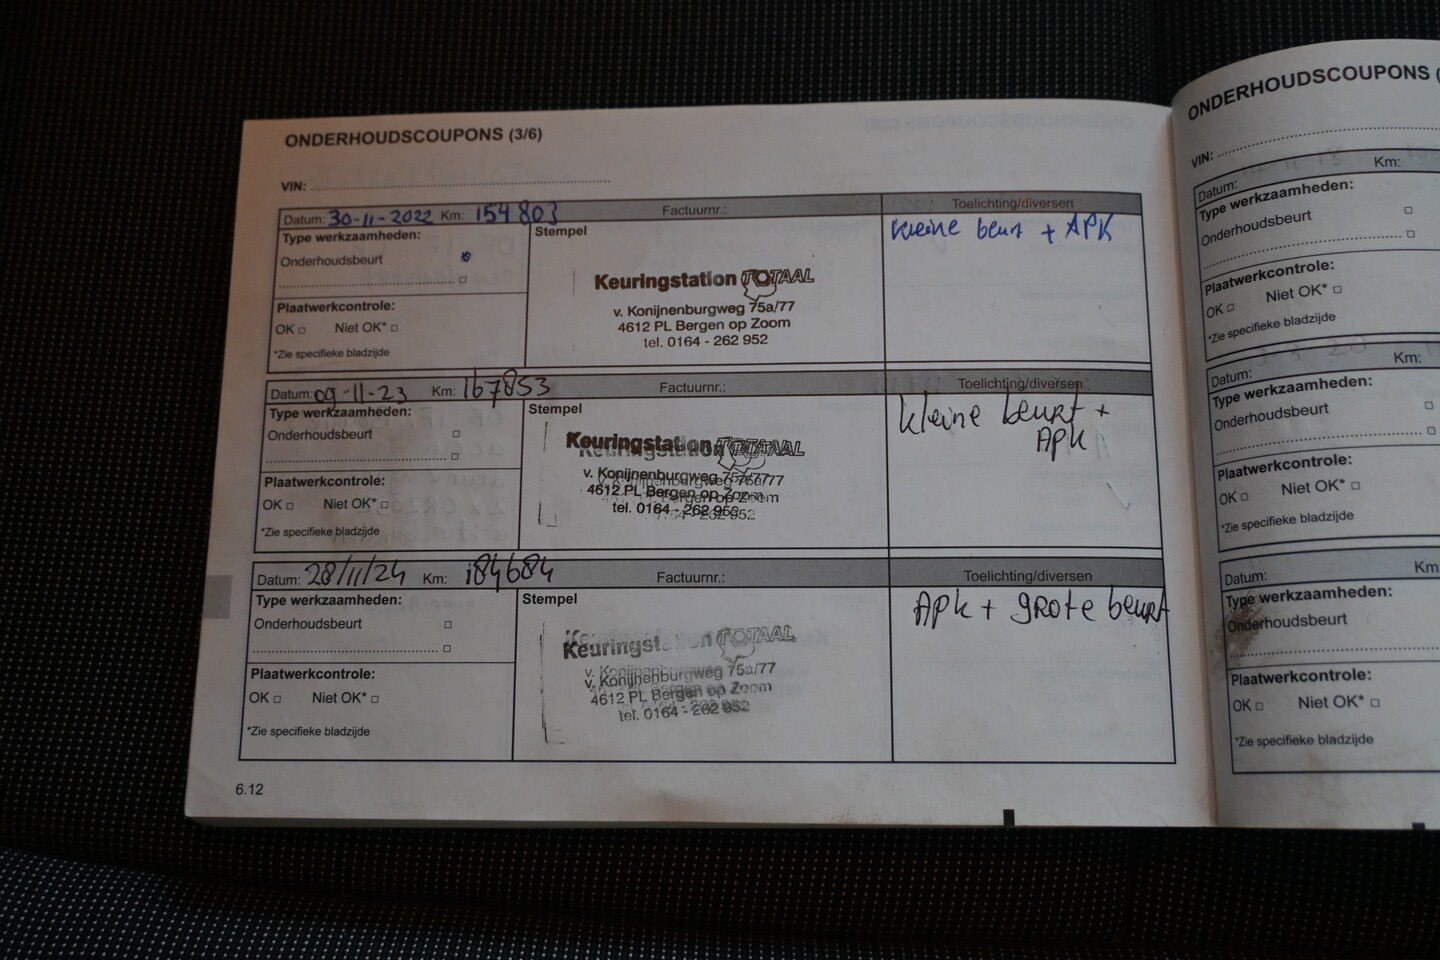 ONDERHOUDSCOUPONS (3/6)
VIN:
Datum: 30-11-2022 Km: 154803 Factuurnr.: Toelichting/diversen
Type werkzaamheden:
Onderhoudsbeurt
Stempel
Keuringstation TOTAAL
v. Konijnenburgweg 75a/77
4612 PL Bergen op Zoom
tel. 0164 - 262 952
kleine beurt + APK
Plaatwerkcontrole:
OK Niet OK*
*Zie specifieke bladzijde
Datum: 09-11-23 Km: 167853 Factuurnr.: Toelichting/diversen
Type werkzaamheden:
Onderhoudsbeurt
Stempel
Keuringstation TOTAAL
v. Konijnenburgweg 75a/77
4612 PL Bergen op Zoom
tel. 0164 - 262 952
kleine beurt +
APK
Plaatwerkcontrole:
OK Niet OK*
*Zie specifieke bladzijde
Datum: 28/11/24 Km: 184684 Factuurnr.: Toelichting/diversen
Type werkzaamheden:
Onderhoudsbeurt
Stempel
Keuringstation TOTAAL
v. Konijnenburgweg 75a/77
4612 PL Bergen op Zoom
tel. 0164 - 262 952
APK + grote beurt
Plaatwerkcontrole:
OK Niet OK*
*Zie specifieke bladzijde
6.12
ONDERHOUDSCOUPONS (
VIN:
Datum: Km:
Type werkzaamheden:
Onderhoudsbeurt
Plaatwerkcontrole:
OK Niet OK*
*Zie specifieke bladzijde
Datum: Km:
Type werkzaamheden:
Onderhoudsbeurt
Plaatwerkcontrole:
OK Niet OK*
*Zie specifieke bladzijde
Datum: Km
Type werkzaamheden:
Onderhoudsbeurt
Plaatwerkcontrole:
OK Niet OK*
*Zie specifieke bladzijde